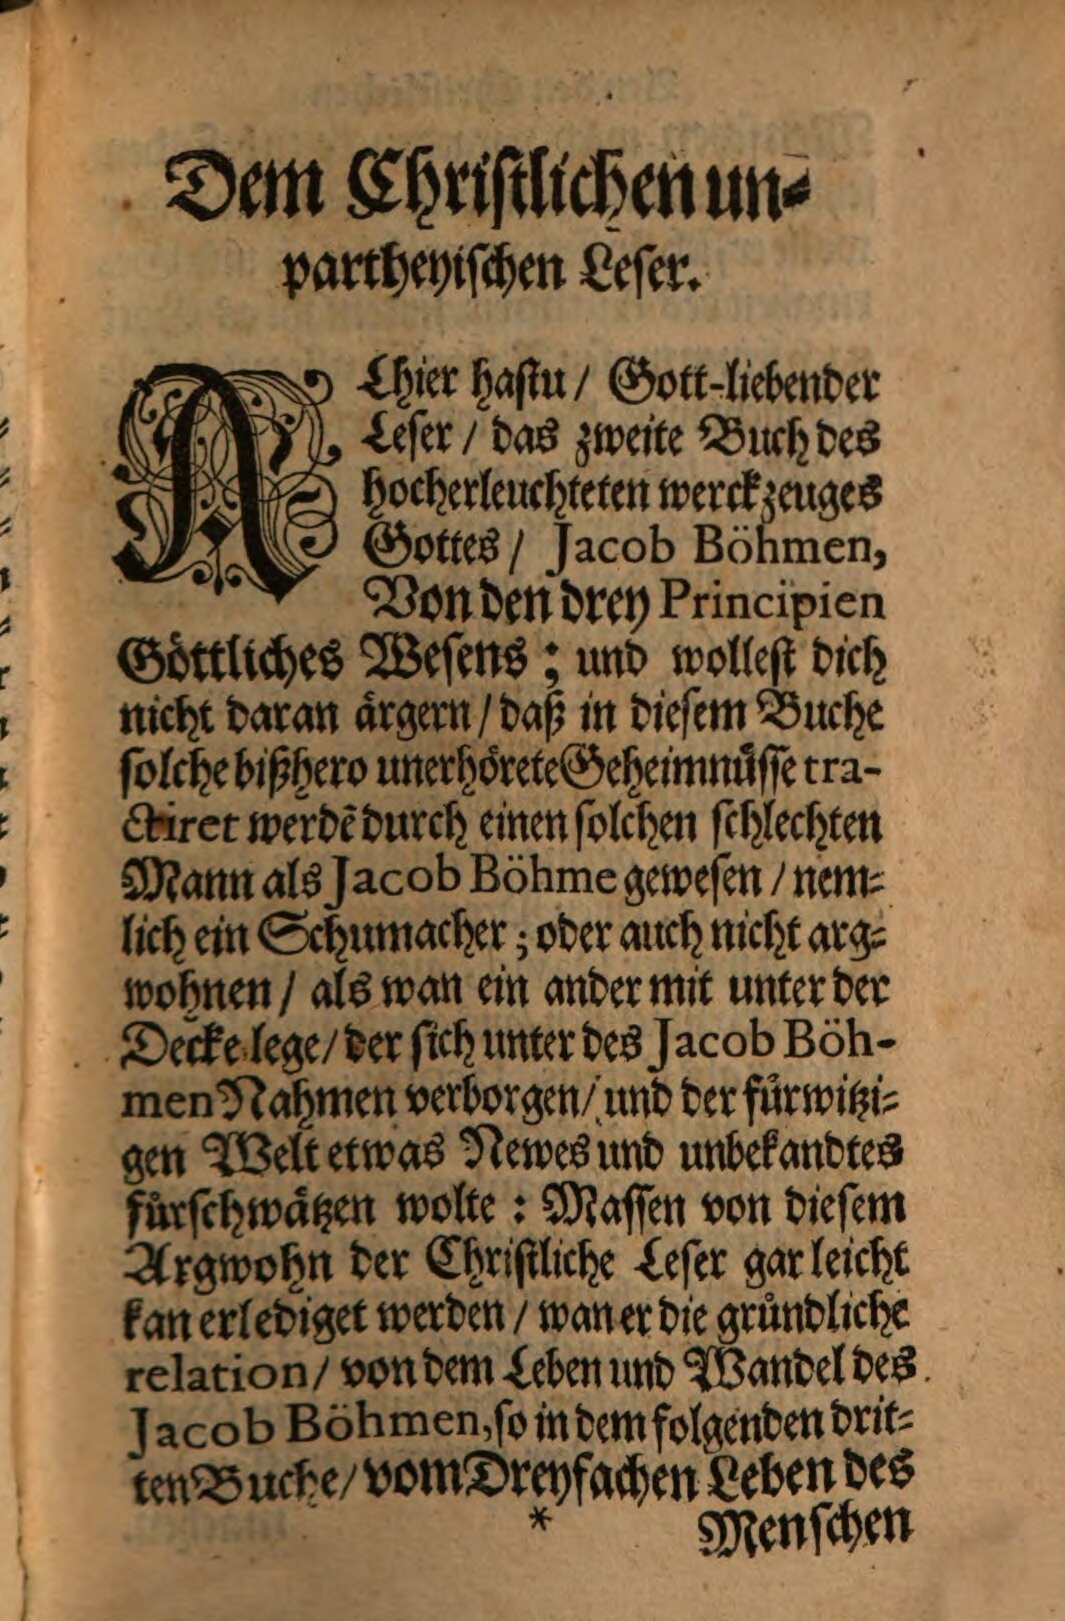 Dem Chriſtlichen un⸗
partheyiſchen Leſer.
ALhier haſtu / Gott-liebender
Leſer / das zweite Buch des
hocherleuchteten werckzeuges
Gottes / Jacob Böhmen,
Von den drey Principien
Göttliches Weſens ; und wolleſt dich
nicht daran ärgern / daß in dieſem Buche
ſolche bißhero unerhörete Geheimnüſſe tra-
ctiret werdē durch einen ſolchen ſchlechten
Mann als Jacob Böhme geweſen / nem⸗
lich ein Schumacher ; oder auch nicht arg⸗
wohnen / als wan ein ander mit unter der
Decke lege / der ſich unter des Jacob Böh-
men Nahmen verborgen / und der fürwitzi⸗
gen Welt etwas Newes und unbekandtes
fürſchwätzen wolte : Maſſen von dieſem
Argwohn der Chriſtliche Leſer gar leicht
kan erlediget werden / wan er die gründliche
relation / von dem Leben und Wandel des
Jacob Böhmen, ſo in dem folgenden drit⸗
ten Buche / vom Dreyfachen Leben des
* Menſchen